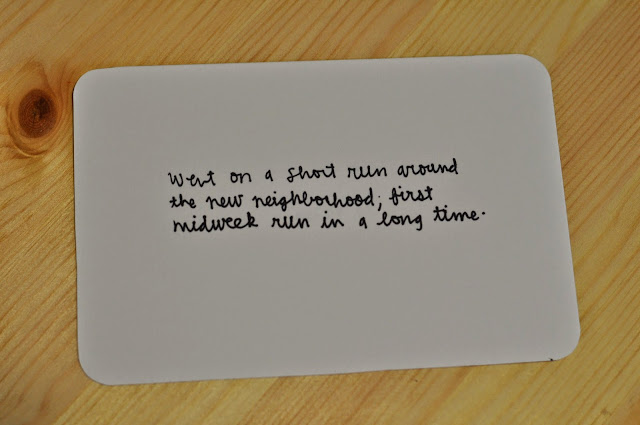 Went on a short run around
the new neighborhood; first
midweek run in a long time.